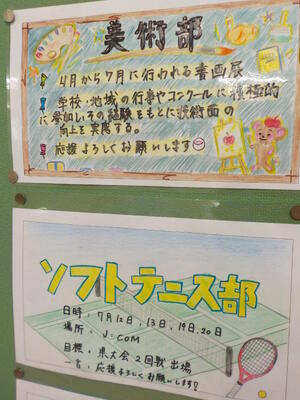 美術部
4月から7月に行われる書画展
学校・地域の行事やコンクールに積極的
に参加し、その経験をもとに技術面の
向上を実感する。
応援よろしくお願いします
ソフトテニス部
日時:7月12日,13日,19日,20日
場所:J:COM
目標:県大会2回戦出場
一言:応援よろしくお願いします!!